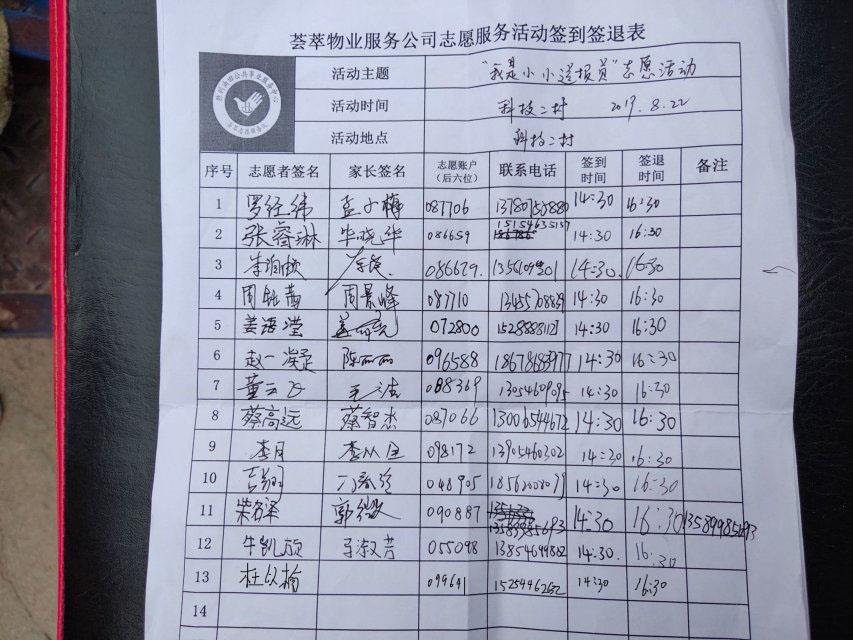 荟萃物业服务公司志愿服务活动签到签退表
活动主题 "我是小小送报员"志愿活动
活动时间 科技二村 2019.8.22
活动地点 科技二村
序号 志愿者签名 家长签名 志愿账户(后六位) 联系电话 签到时间 签退时间 备注
1 罗经纬 孟小梅 087706 13780755880 14:30 16:30
2 张睿琳 毕晓华 086659 15154635157 14:30 16:30
3 086629. 14:30. 16:30
4 周 周景峰 087710 13455708839 14:30 16:30
5 姜语滢 072800 15288881121 14:30 16:30
6 赵一凝 陈丽丽 096588 18678683977 14:30 16:30
7 董云飞 088369 13054609095 14:30 16:30
8 蔡高远 蔡智杰 087066 13006544672 14:30 16:30
9 李月 李从 098172 13905460302 14:30 16:30
10 048905 14:30 16:30
11 柴 郭 090887 13589985693 14:30 16:30 13589985693
12 牛凯旋 马淑芳 055098 13854699802 14:30. 16:30
13 杜以楠 099641 15254462652 14:30 16:30
14